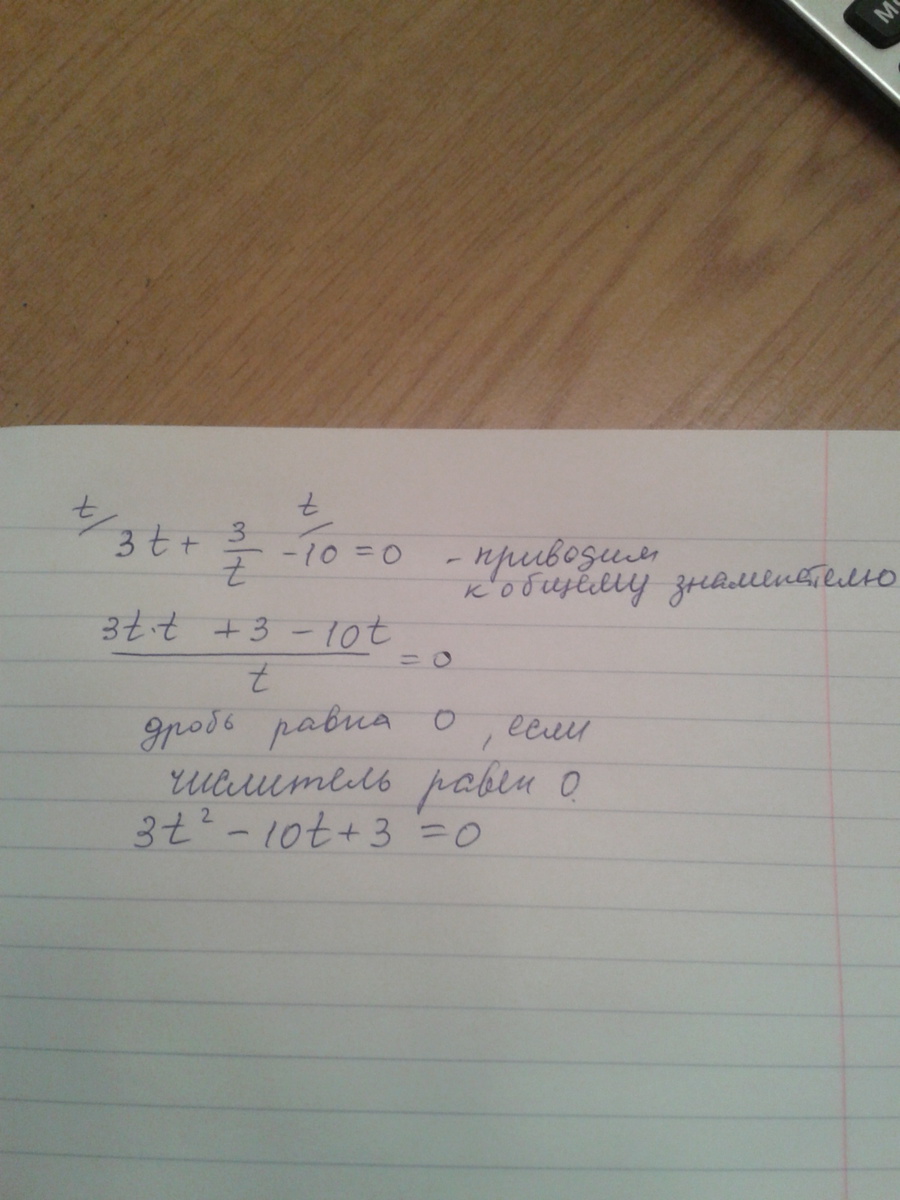 t/ 3t + 3/t - t/ 10 = 0 - приводим
к общему знаменателю
3t·t + 3 - 10t
t
= 0
дробь равна 0, если
числитель равен 0.
3t² - 10t + 3 = 0